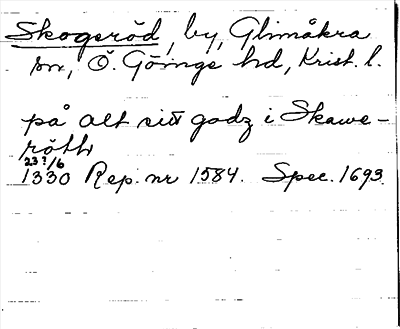 Skogsröd, by, Glimåkra
sn, Ö. Göinge hd, Krist. l.
på alt sitt godz i Skawe-
röth
23?/6
1330 Rep. nr 1584. Spec. 1693.